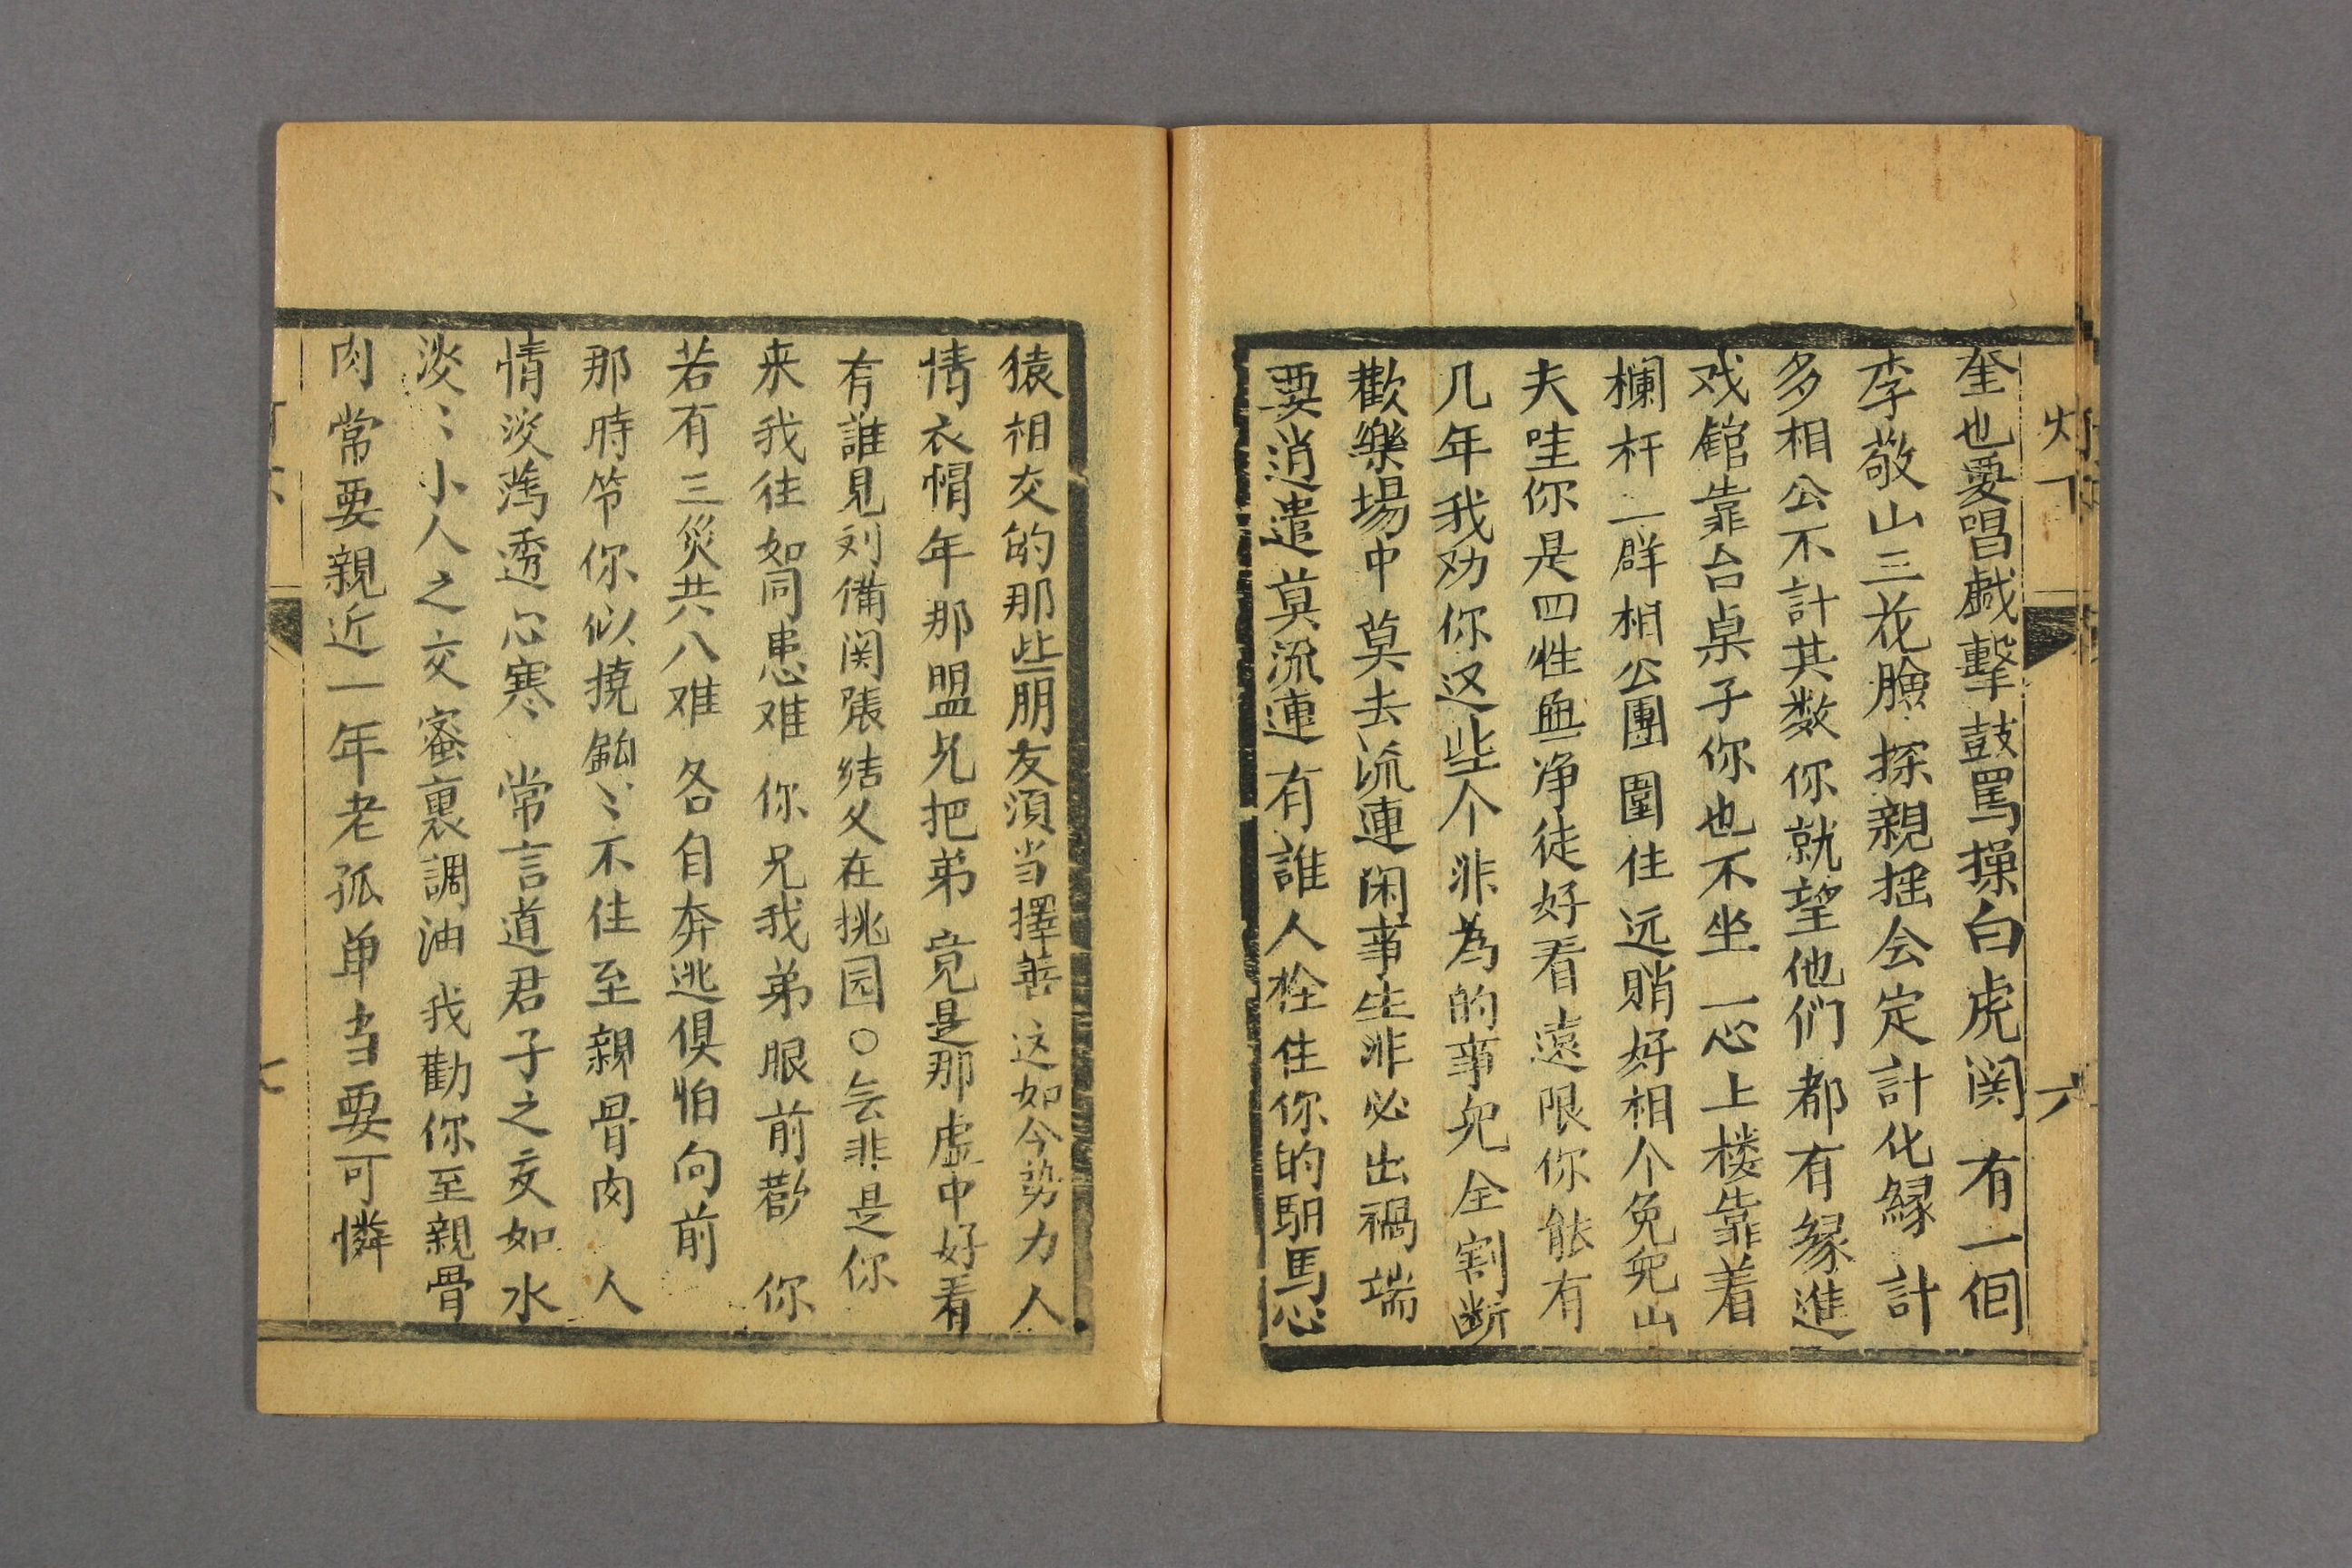 奎也要唱戯擊鼓罵操白虎関有一佪
李敬山三花臉探親揺会定計化緣計
多相公不計其数你就望他们都有緣進
戏館靠台桌子你也不坐一心上楼靠着
欄杆一群相公團圍住远賙好相个兔兒山
夫哇你是四性血净徒好看遠限你能有
几年我劝你这些个非為的事兒全割断
歡樂場中莫去流連闲事生非必出禍端
要消遣莫流連有誰人栓住你的馹馬心
灯下
六
猿相交的那些朋友須当擇善这如今势力人
情衣帽年那盟兄把弟竟是那虚中好看
有誰見刘備関張结义在挑园○无非是你
来我往如同患难你兄我弟眼前歡你
若有三災共八难各自奔逃俱怕向前
那時节你似撓鈎〻不住至親骨肉人
情淡薄透心寒常言道君子之交如水
淡〻小人之交蜜裏調油我勸你至親骨
肉常要親近一年老孤单当要可憐
七